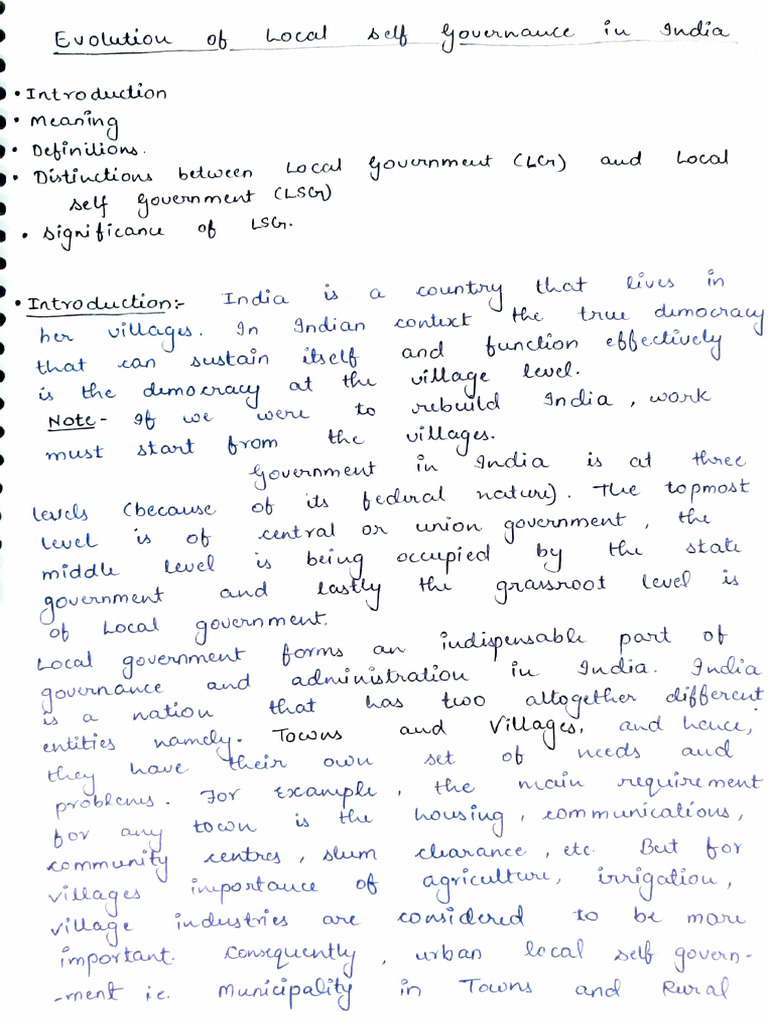 Evolution of Local Self Governance in India
• Introduction
• Meaning
• Definitions.
• Distinctions between Local Government (LG) and Local
Self Government (LSG)
• Significance of LSG.
• Introduction:- India is a country that lives in
her villages. In Indian context the true democracy
that can sustain itself and function effectively
is the democracy at the village level.
Note - If we were to rebuild India, work
must start from the villages.
Government in India is at three
levels (because of its federal nature). The topmost
level is of central or union government, the
middle level is being occupied by the state
government and lastly the grassroot level is
of Local government.
Local government forms an indispensable part of
governance and administration in India. India
is a nation that has two altogether different
entities namely. Towns and Villages, and hence,
they have their own set of needs and
problems. For Example, the main requirement
for any town is the housing, communications,
community centres, slum clearance, etc. But for
villages importance of agriculture, irrigation,
village industries are considered to be more
important. Consequently, urban local self govern-
-ment i.e. Municipality in Towns and Rural